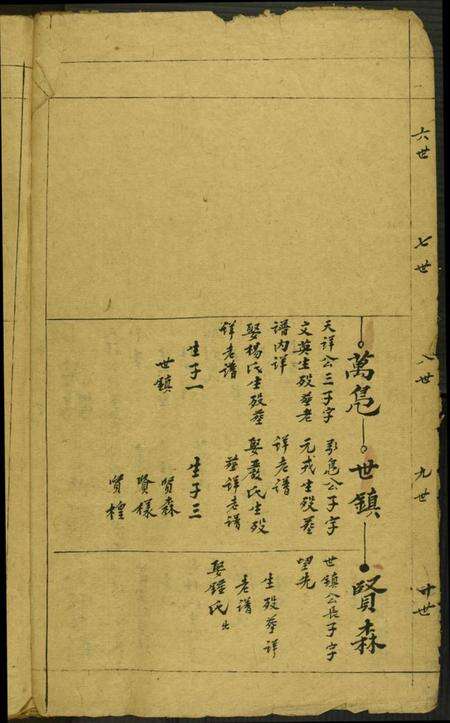 六世
七世
八世
九世
十世
萬凫
天詳公三子字
文英生殁葬老
譜内详
娶楊氏生殁葬
詳老譜
生子一
世鎮
世鎮
凫公子字
元戎生殁葬
詳老譜
娶嚴氏生殁
葬詳老譜
生子三
賢森
賢樣
賢楻
賢森
世鎮公長子字
望先
生殁葬详
老譜
娶鍾氏